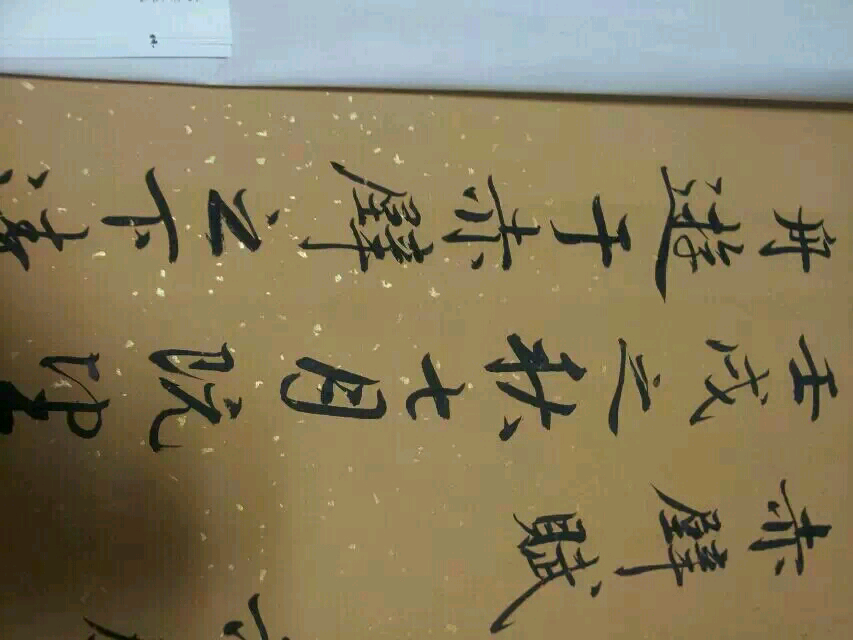 赤壁賦
壬戌之秋七月既望
舟遊于赤壁之下清